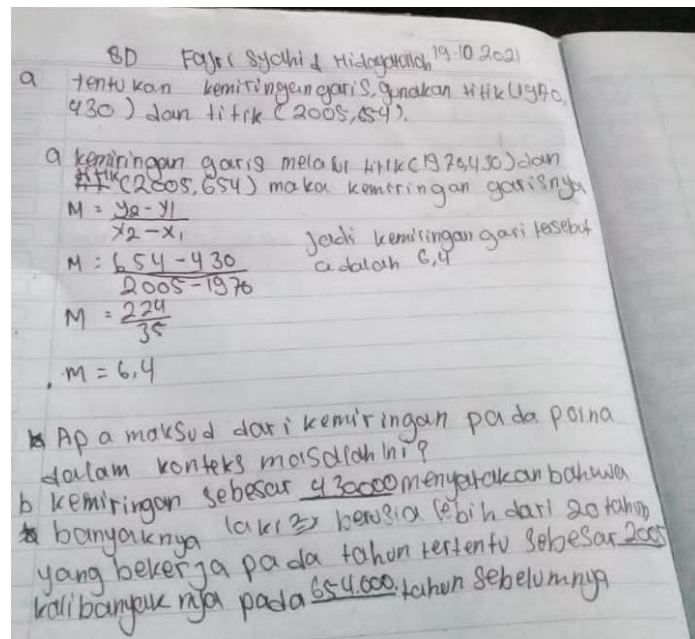 8D Fajri Syahid Hidayatullah 19-10 2021
a tentukan kemiringan garis, gunakan titik (1970,
430) dan titik (2005, 654).
a kemiringan garis melalui titik (1970,430) dan
titik (2005, 654) maka kemiringan garisnya
M = y2 - y1
x2 - x1
Jadi kemiringan gari tersebut
adalah 6,4
M = 654 - 430
2005 - 1970
M = 224
35
m = 6,4
Apa maksud dari kemiringan pada poina
dalam konteks masalah ini?
b kemiringan sebesar 430000 menyatakan bahwa
banyaknya laki2 berusia lebih dari 20 tahun
yang bekerja pada tahun tertentu sebesar 2005
kali banyak nya pada 654.000. tahun sebelumnya